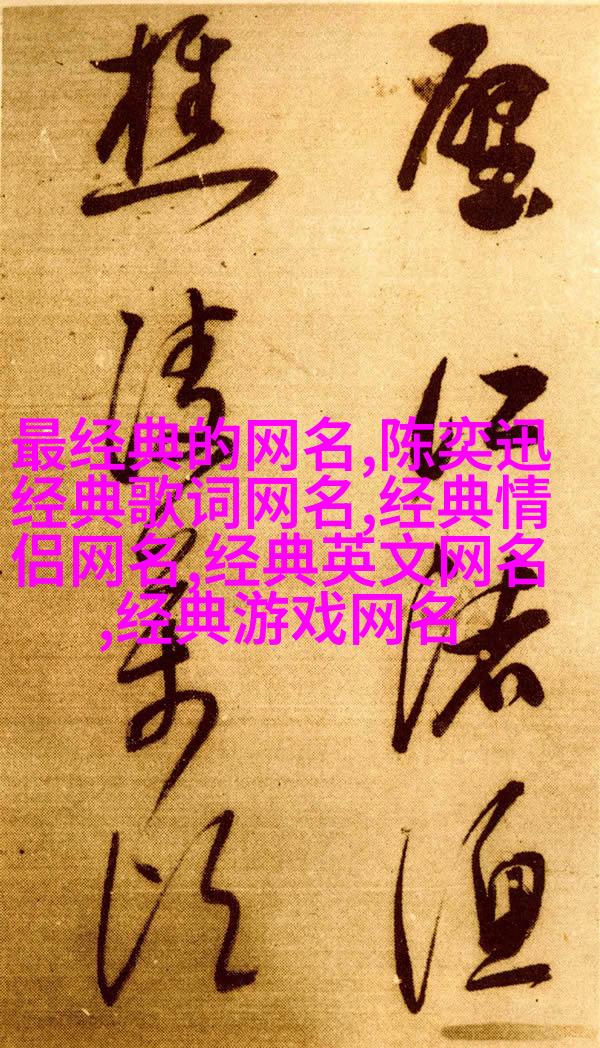 江渚漁
樵
最经典的网名,陈奕迅
经典歌词网名,经典情
侣网名,经典英文网名
,经典游戏网名